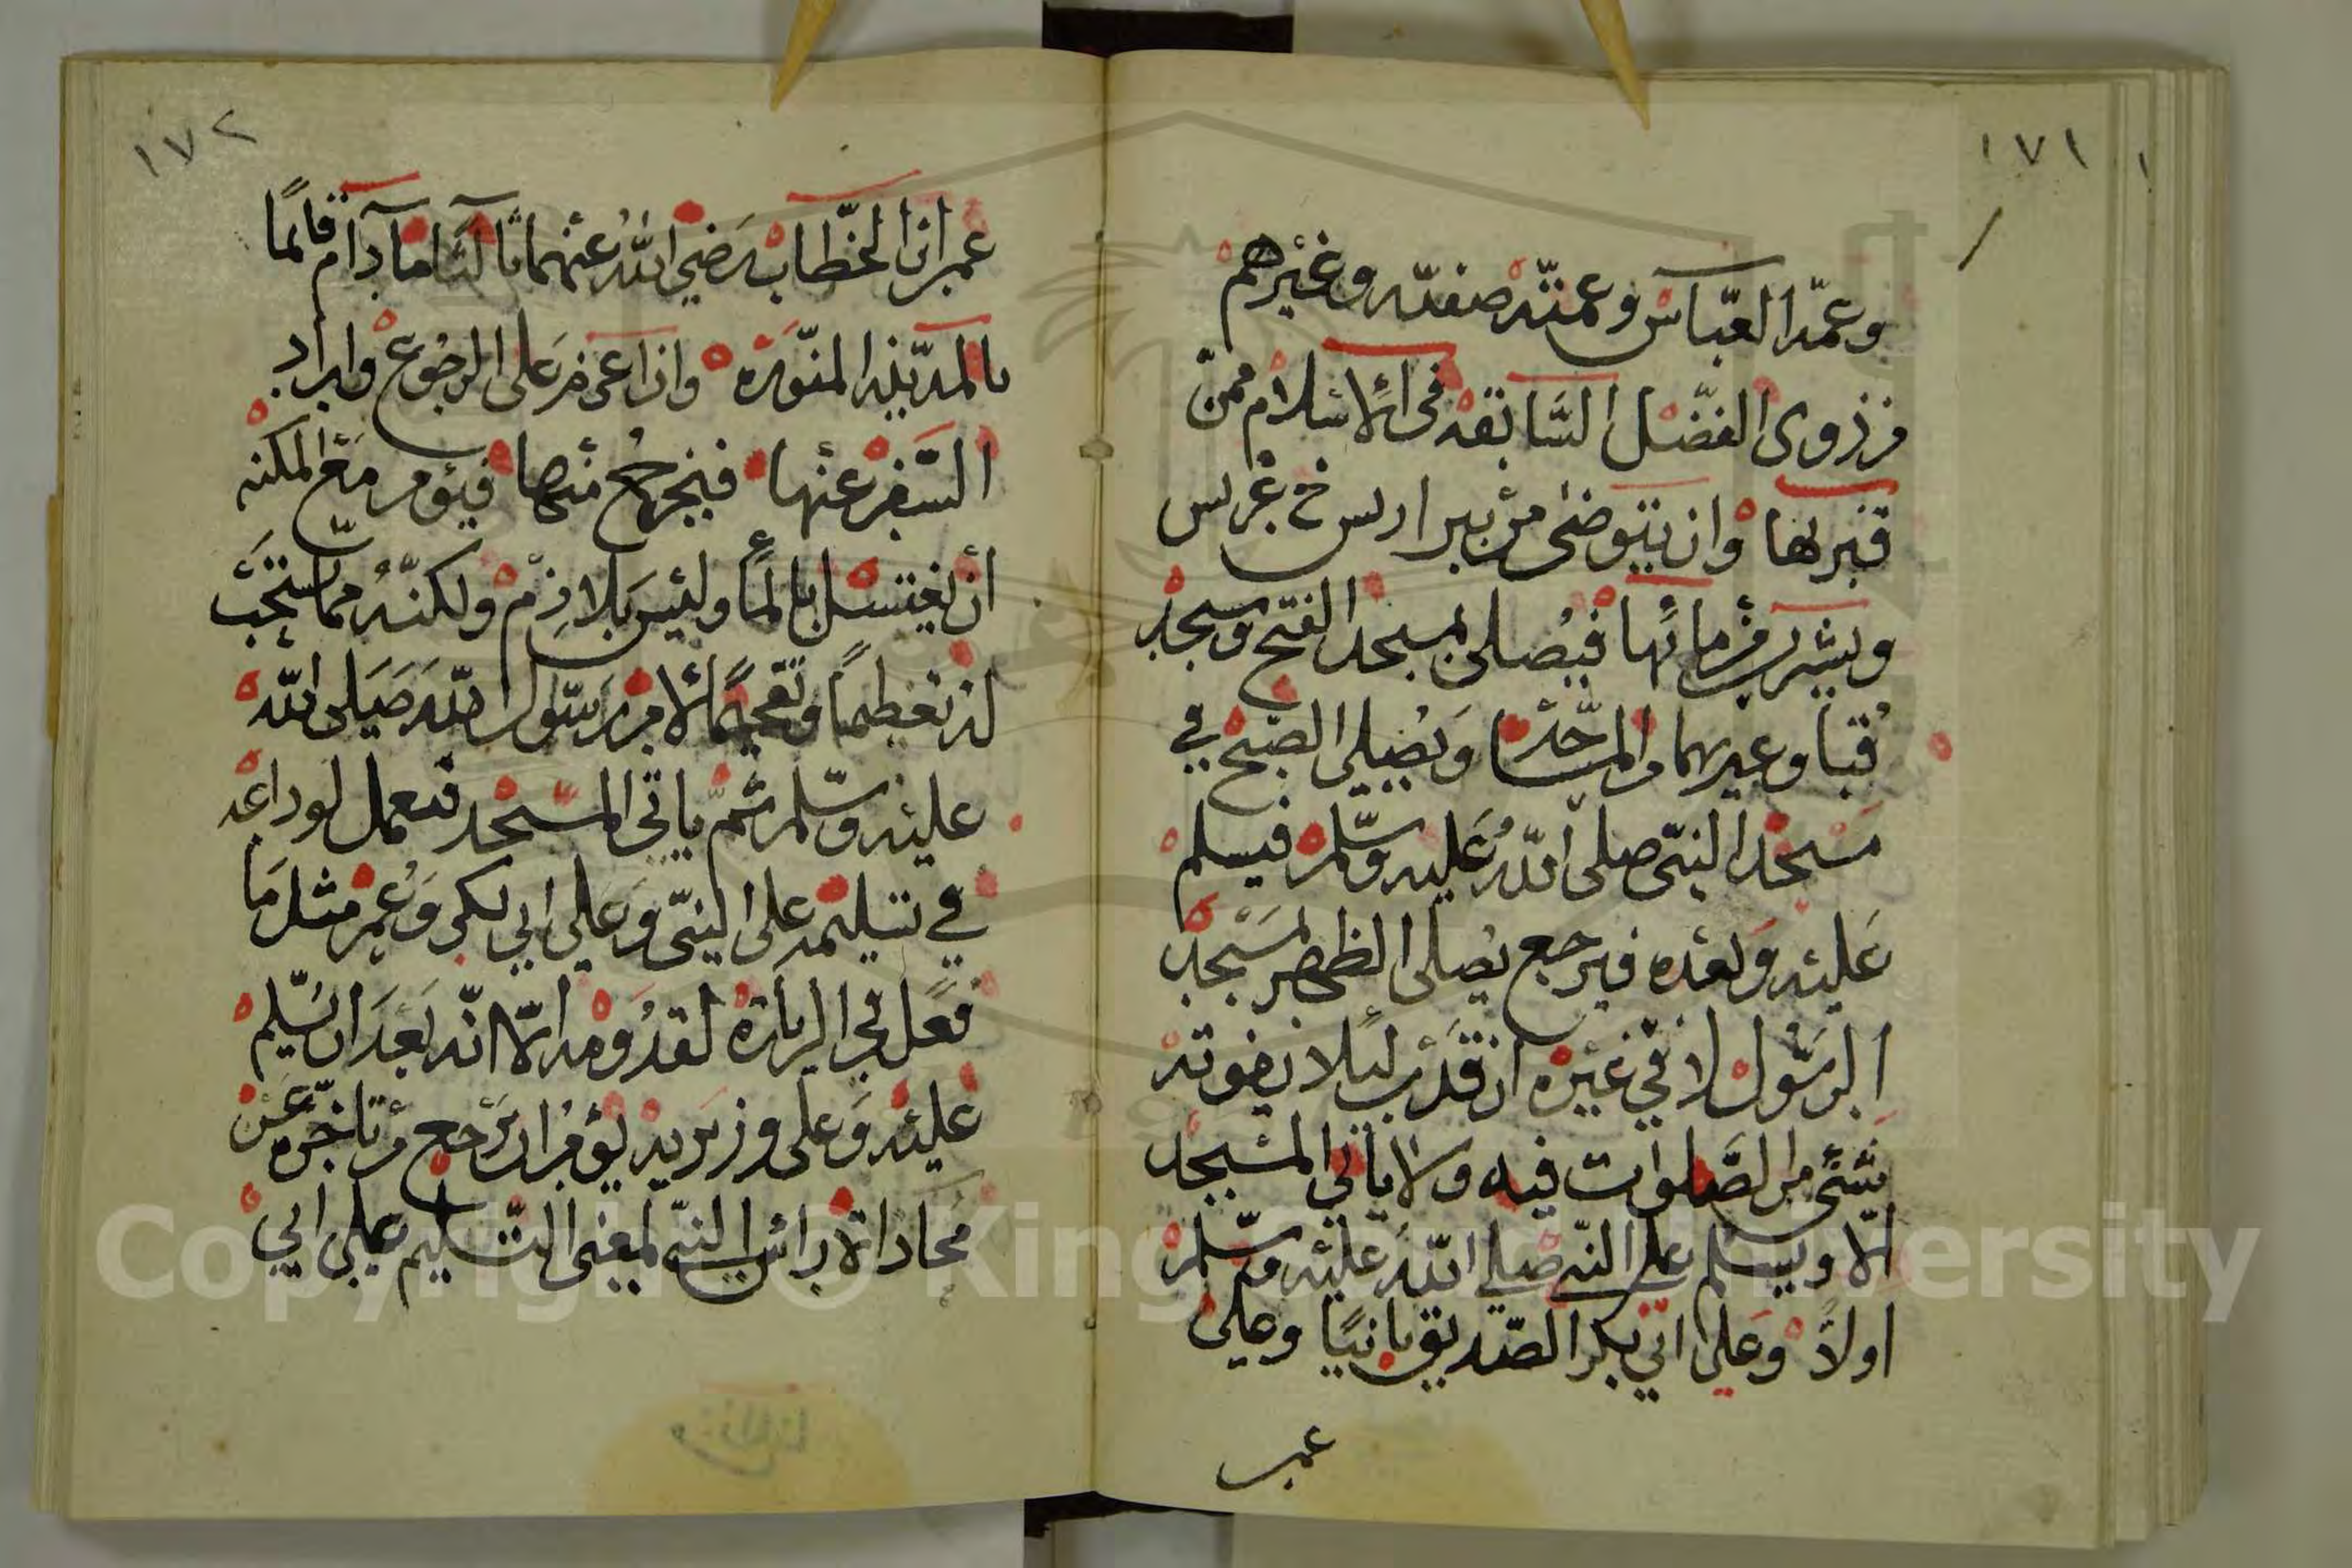 ١٧١
وعمّه العبّاس وعمّته صفيّه وغيرهم
من ذوى الفضل السّابقه فى الاسلام ممّن
قبر بها وان يتوضى من بير اريس خ غرس
ويشرب من مائها فيصلى بمسجد الفتح ومسجد
قبا وغيرهما من المساجد ويصلى الصبح في
مسجد النبّى صلى اللّه عليه وسّلم فيسلم
عليه وبعده فيرجع يصلى الظهر بمسجد
الرسّول لا في غيره ان قدر لئلا يفوته
شئ من الصّلوات فيه ولا ياتي المسجد
الّا ويسلم على النّبى صلى اللّه عليه وسّلم
اولاً وعلى ابي بكر الصّديق ثانيًا وعلى
عمر
١٧٢
عمر ابن الخطّاب رضي اللّه عنهما ثالثًا ما دام قائمًا
بالمديّنه المنوّره واذا عزم على الرجوع واراد
السّفر عنها فيخرج منها فيؤمر مع المكنه
أن يغتسل بالمأ وليس بلازم ولكنّه ممّا يستحّب
له تعظيمًا وتفخيمًا لامر رسّول اللّه صلى اللّه
عليه وسّلم ثمّ ياتى المسّجد فيعمل لوداعه
في تسليمه على النبّى وعلى ابي بكر وعمر مثل ما
فعل في الزيارة لقدومه الّا انّه بعد ان يسّلم
عليه وعلى وزيريه يؤمر ان يرجع من تاخّره عن
محاداة براس النبّى لمعنى التّسليم على ابي